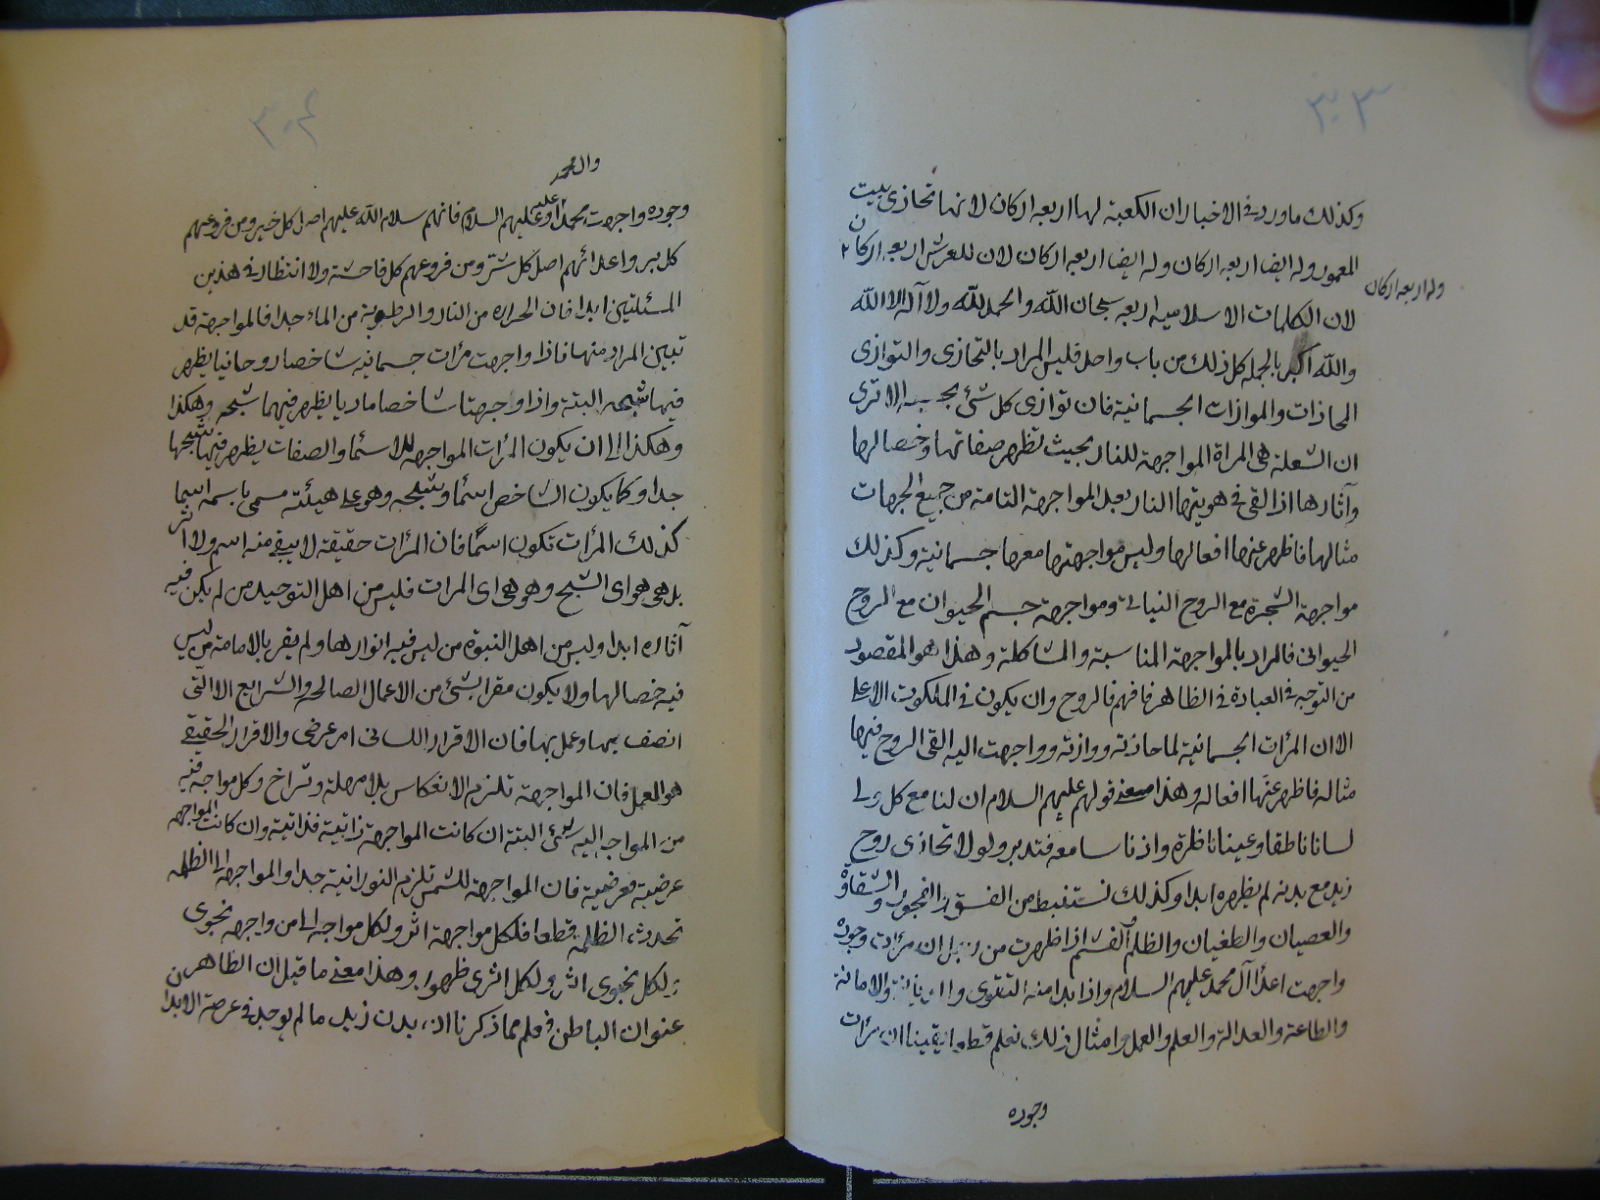 ٣٠٣
وكذلك ما ورد في الاخبار ان الكعبة لها اربعه اركان لانها تحاذى بيت
المعمور وله ايضا اربعه اركان وله ايضا اربعه اركان لان للعرش اربعه اركان
وله اربعه اركان
لان الكلمات الاسلاميه اربعه سبحان الله والحمد لله ولا آله الا الله
والله اكبر بالجمله كل ذلك من باب واحد فليس المراد بالتحازى والتوازى
المحاذات والموازات الجسمانية فان توازى كل شئ بحسبه الا ترى
ان الشعلة هى المراة المواجهة للنار بحيث تظهر صفاتها وخصالها
وآثارها اذا القى فى هويتها النار بعد المواجهة التامة من جميع الجهات
مثالها فاظهر عنها افعالها وليس مواجهتها معها جسمانية وكذلك
مواجهة الشجرة مع الروح النباتى ومواجهة جسم الحيوان مع الروح
الحيوانى فالمراد بالمواجهة المناسبة والمشاكلة وهذا هو المقصود
من التوجه فى العبادة فى الظاهر فافهم فالروح وان يكون فى الملكوت الاعلى
الا ان المرآت الجسمانية لما حاذته ووازته وواجهت اليه القى الروح فيها
مثاله فاظهر عنها افعاله وهذا معنى قولهم عليهم السلام ان لنا مع كل ولى
لسانا ناطقا وعينا ناظرة واذنا سامعه فتدبر ولولا تحاذى روح
زيد مع بدنه لم يظهره ابدا وكذلك نستنبط من الفسق والفجور والشقاوة
والعصيان والطغيان والظلم والغشم اذا ظهرت من رجل ان مرآت وجوده
واجهت اعداء آل محمد عليهم السلام واذا بدا منه التقوى والديانة والامانة
والطاعة والعدالة والعلم والعمل وامثال ذلك نعلم قطعا يقينا ان مرآت
وجوده
٣٠٤
وال محمد
وجوده واجهت محمدا وعليهم السلام فانهم سلام الله عليهم اصل كل خير ومن فروعهم
كل بر واعدائهم اصل كل شر ومن فروعهم كل فاحشة ولا انتظار فى هذين
المسئلتين ابدا فان الحراره من النار والرطوبة من الماء جدا فالمواجهة قد
تبين المراد منها فاذا واجهت مرآت جسمانيه شاخصا روحانيا يظهر
فيها شبحه البتة واذا وجهتا شاخصا ماديا يظهر فيهما شبحه وهكذا
وهكذا الى ان يكون المرآت المواجهة للاسماء والصفات يظهر فيها شبحها
جدا وكما يكون الشاخص اسما وشبحه وهو على هيئته مسمى باسمه اسما
كذلك المرآت تكون اسما فان المرآت حقيقة لا يبقى منه اسم ولا اثر
بل هى هو اى الشبح وهو هى اى المرات فليس من اهل التوحيد من لم يكن فيه
آثاره ابدا وليس من اهل النبوة من ليس فيه انوارها ولم يقر بالامامة من ليس
فيه خصالها ولا يكون مقرا بشئ من الاعمال الصالحة والشرايع الا التى
اتصف بها وعمل بها فان الاقرار اللسانى امر عرضى والاقرار الحقيقى
هو العمل فان المواجهة تلزم الانعكاس بلا مهلة وتراخ وكل مواجه فيه
من المواجه اليه شئ البتة ان كانت المواجهة ذاتية فذاتية وان كانت المواجهه
عرضية فعرضية فان المواجهة للشمس تلزم النورانية جدا والمواجهة الى الظلمه
تحدث الظلمة قطعا فلكل مواجهة اثر ولكل مواجه الى من واجهه نحوى
ولكل نحوى اثر ولكل اثرى ظهور وهذا معنى ما قيل ان الظاهر
عنوان الباطن فعلم مما ذكرنا ان بدن زيد ما لم يوجد فى عرصة الابدان